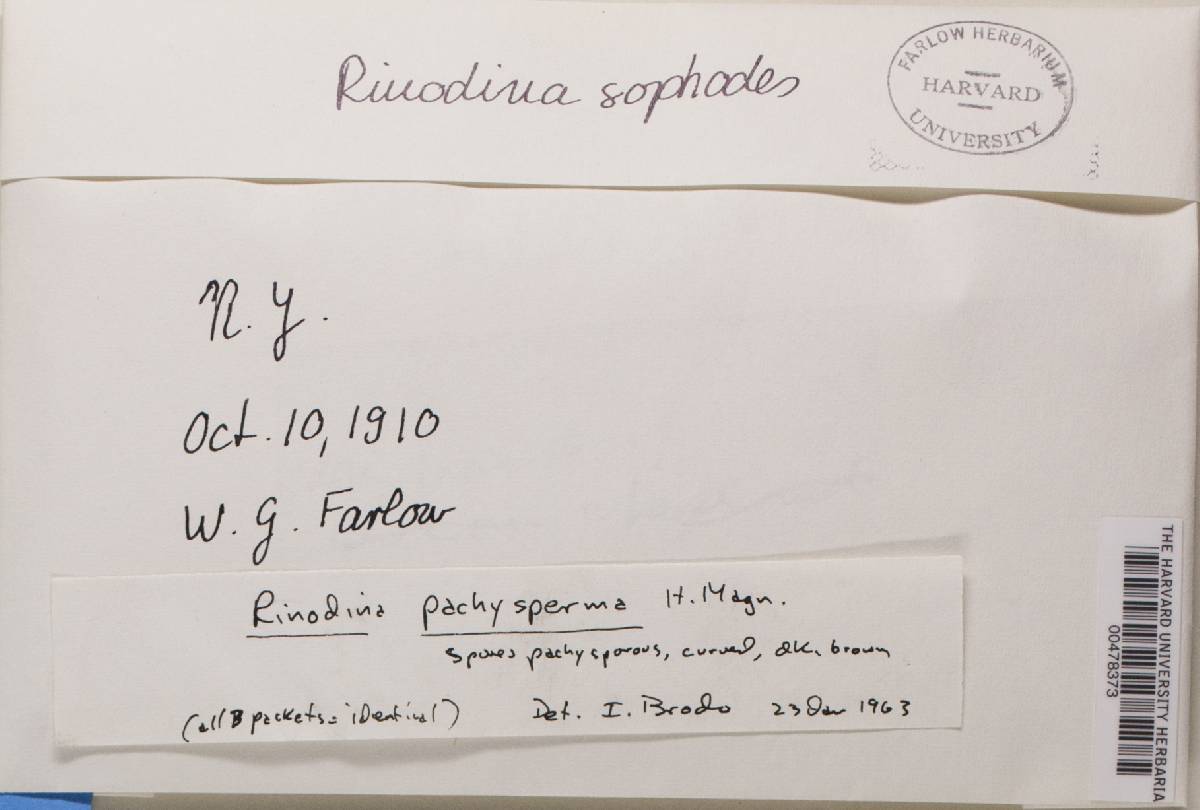 Rinodina sophodes
FARLOW HERBARIUM
HARVARD
UNIVERSITY
N. Y.
Oct. 10, 1910
W. G. Farlow
Rinodina pachysperma H. Magn.
spores pachysporous, curved, dk. brown
(all 3 packets = identical) Det. I. Brodo 23 Jan 1963
THE HARVARD UNIVERSITY HERBARIA
00478373